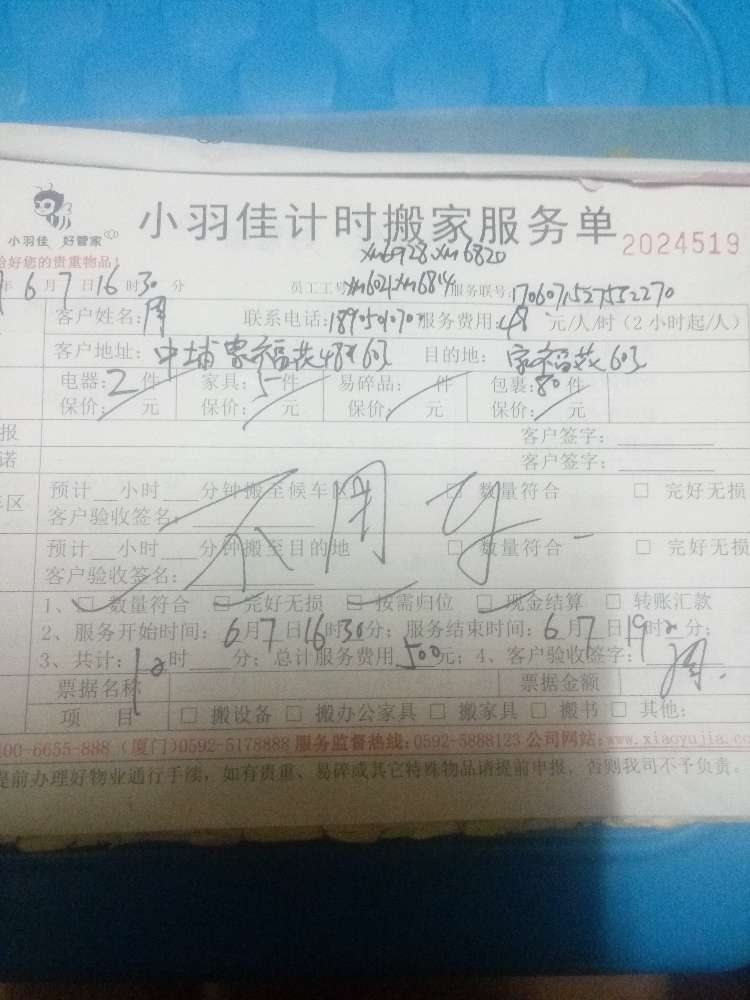 小羽佳 好管家
小羽佳计时搬家服务单
2024519
好您的贵重物品!
xm6928 xm6820
年 6 月 7 日 16 时 30 分 员工工号: xm6021 xm6814 服务联号: 170607152755 2270
客户姓名: 周 联系电话: 服务费用: 48 元/人/时 (2小时起/人)
客户地址: 中埔家福花 603 目的地: 家福花 603
电器: 2 件 家具: 5 件 易碎品: 件 包裹: 80 件
保价: 元 保价: 元 保价: 元 保价: 元
报 客户签字:
诺 客户签字:
预计__小时___分钟搬至候车区 □ 数量符合 □ 完好无损
车区 客户验收签名:
不用车
预计__小时___分钟搬至目的地 □ 数量符合 □ 完好无损
客户验收签名:
1、□ 数量符合 □ 完好无损 □ 按需归位 □ 现金结算 □ 转账汇款
2、服务开始时间: 6 月 7 日 16 时 30 分; 服务结束时间: 6 月 7 日 19 时 分;
3、共计: 时____分; 总计服务费用 500 元; 4、客户验收签字: 周
票据名称 票据金额
项 目 □ 搬设备 □ 搬办公家具 □ 搬家具 □ 搬书 □ 其他:
00-6655-888 (厦门)0592-5178888 服务监督热线:0592-5888123 公司网站:www.xiaoyujia.co
提前办理好物业通行手续, 如有贵重、易碎或其它特殊物品请提前申报, 否则我司不予负责。